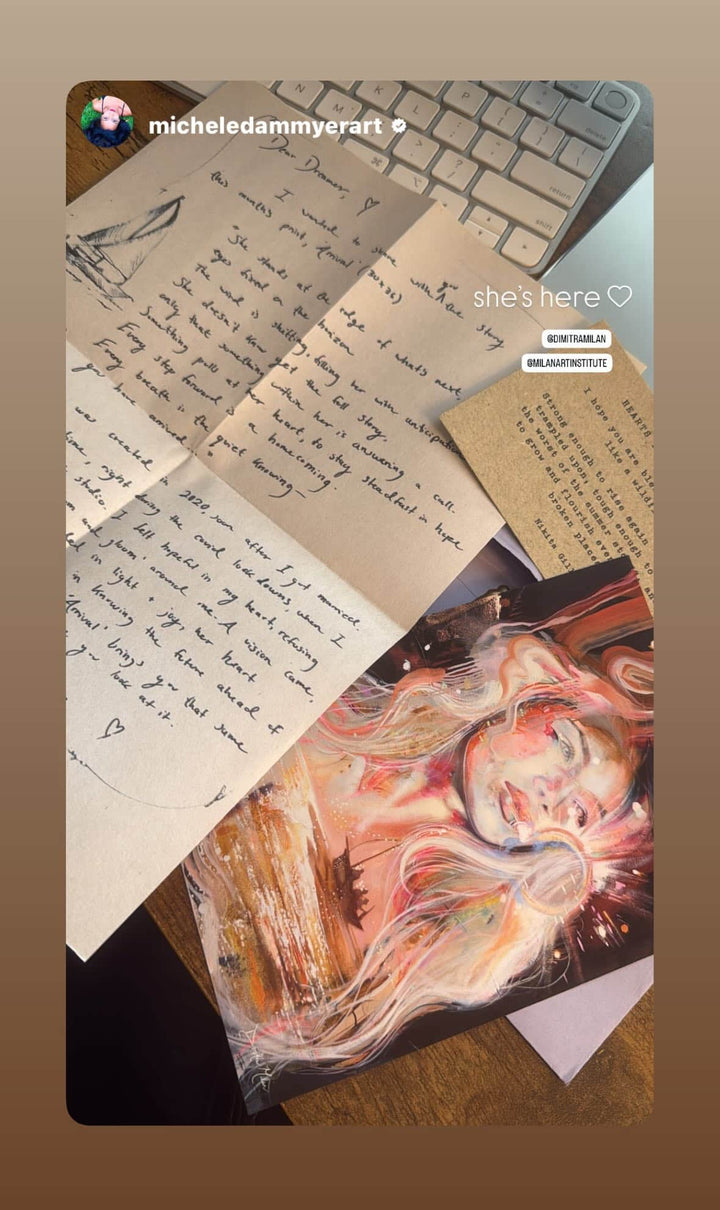 micheledammyerart
Dear Dreamer, ♡
I wanted to share with you the story
this month's print, 'Arrival' (30x36)
"She stands at the edge of what's next,
eyes fixed on the horizon
The wind is shifting, filling her with anticipation
She doesn't know yet the full story.
only that something within her is answering a call.
Something pulls at her heart, to stay steadfast in hope
Every step forward is a homecoming.
Every breath is the quiet knowing—
was created in 2020, soon after I got married.
time, right during the covid lockdowns, when I
studio. I felt hopeful in my heart, refusing
and gloom' around me. A vision came,
in light + joy, her heart
in knowing the future ahead of
'Arrival' brings you that same
you look at it.
♡
she's here ♡
@DIMITRAMILAN
@MILANARTINSTITUTE
HEARTS
I hope you are
like a
Strong enough to rise again
trampled upon, tough enough to
the worst of the summer
to grow and flourish
broken
Nikita
N
M
K
L
P
⌘
delete
return
shift